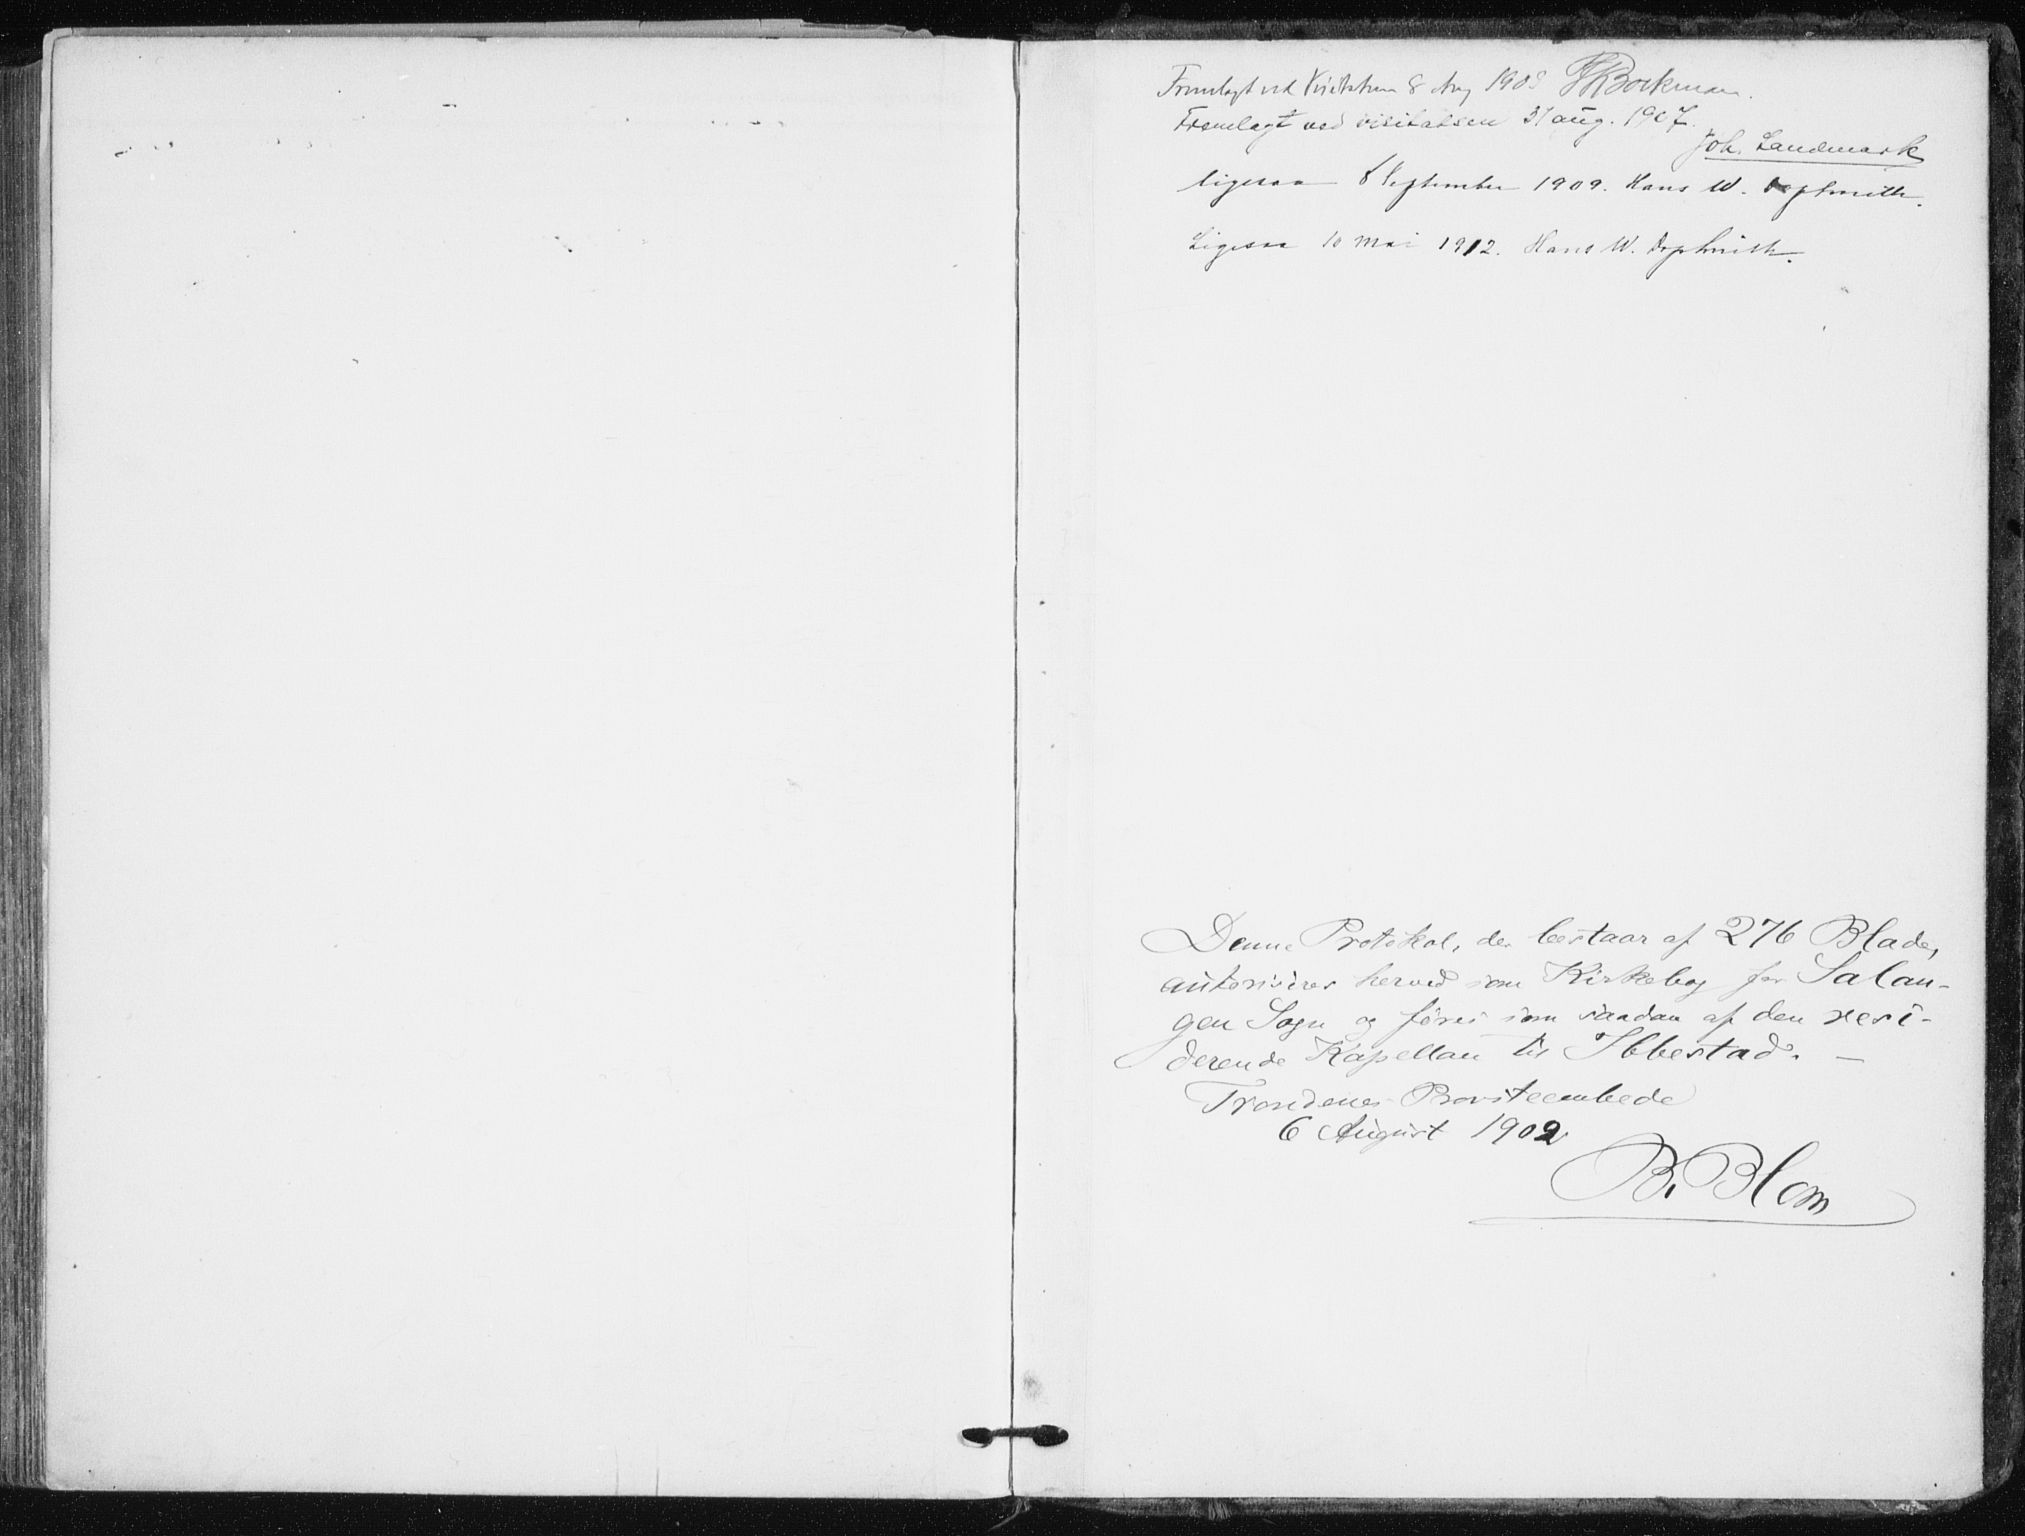 Fremlagt ved Visitatsen 8 Aug 1903 Bøckman.
Fremlagt ved visitatsen 31 aug. 1907.
Joh. Landmark
ligesaa 8 September 1909. Hans W. Hopstock.
Ligesaa 10 Mai 1912. Hans W.
Denne Protokol, der bestaar af 276 Blade,
autoriseres herved som Kirkebog for Salan-
gen Sogn og føres som saadan af den resi-
derende Kapellan til Ibbestad. —
Trondenes Provsteembede
6 August 1902
B. Blom